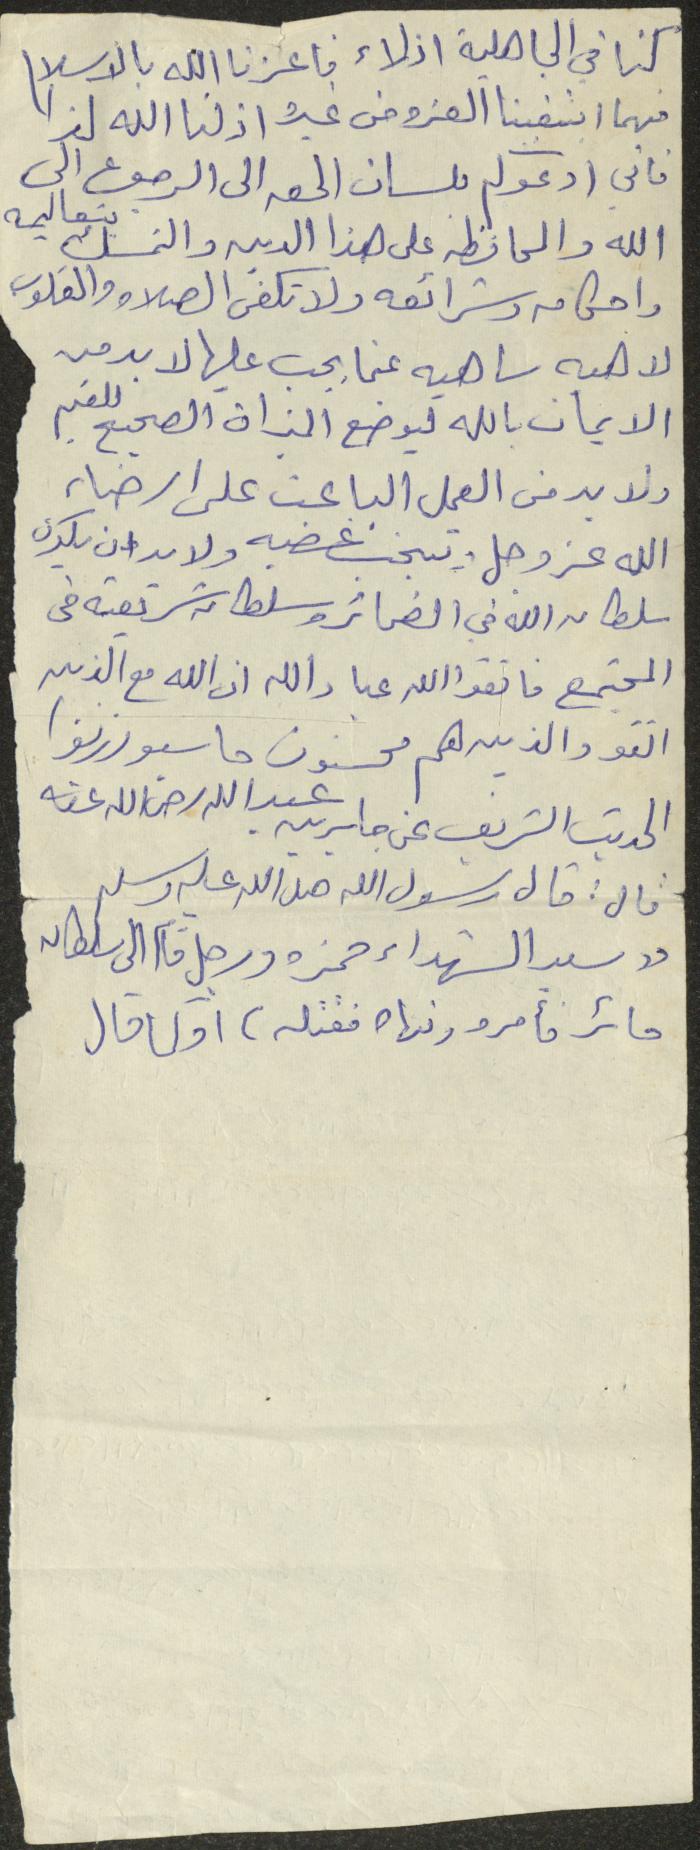 كنا في الجاهلية اذلاء فاعزنا الله بالاسلام
فهما ابتغينا العز من غيره اذلنا الله لذا
فاني ادعوكم بلسان الحق الى الرجوع الى
الله والمحافظه على هذا الدين والتمسك بتعاليمه
واحكامه وشرائعه ولا تكفى الصلاه والقلوب
لاهيه ساهيه عما يجب عليها لا بد من
الايمان بالله ليوضع الميزان الصحيح للقيم
ولا بد من العمل الباعث على ارضاء
الله عز وجل وتجنب غضبه ولا بد ان يكون
سلطان الله في الضمائر وسلطان شريعته في
المجتمع فاتقوا الله عباد الله ان الله مع الذين
اتقو والذين هم محسنون حاسبو
الحديث الشريف عن جابر بن عبد الله رضي الله عنه
قال: قال رسول الله صلى الله عليه وسلم
"سيد الشهداء حمزه ورجل قام الى سلطان
جائر فأمره ونهاه فقتله) او كما قال